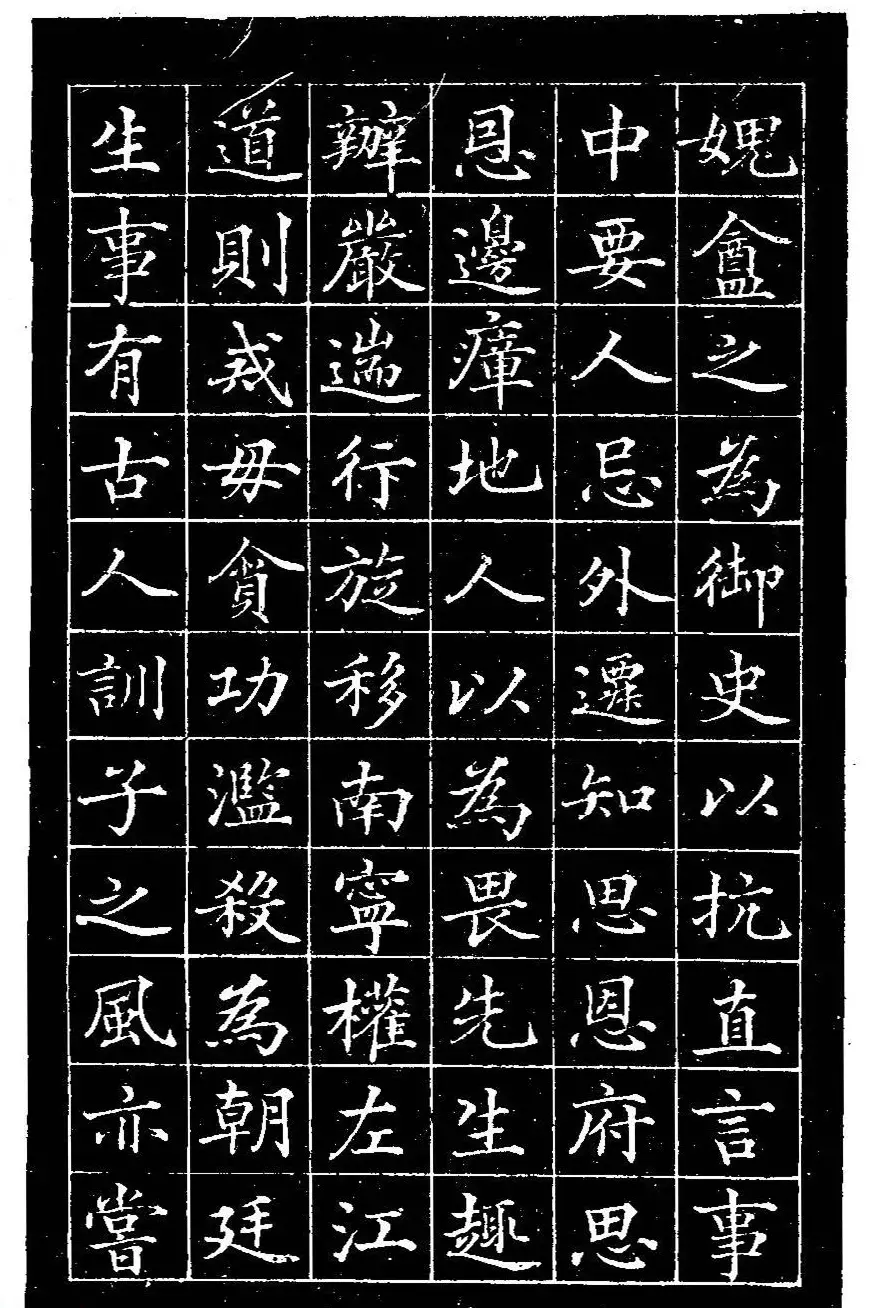 媿盦之為御史以抗直言事
中要人忌外遷知思恩府思
恩邊瘴地人以為畏先生趣
辦嚴遄行旋移南寧權左江
道則戒毋貪功濫殺為朝廷
生事有古人訓子之風亦嘗